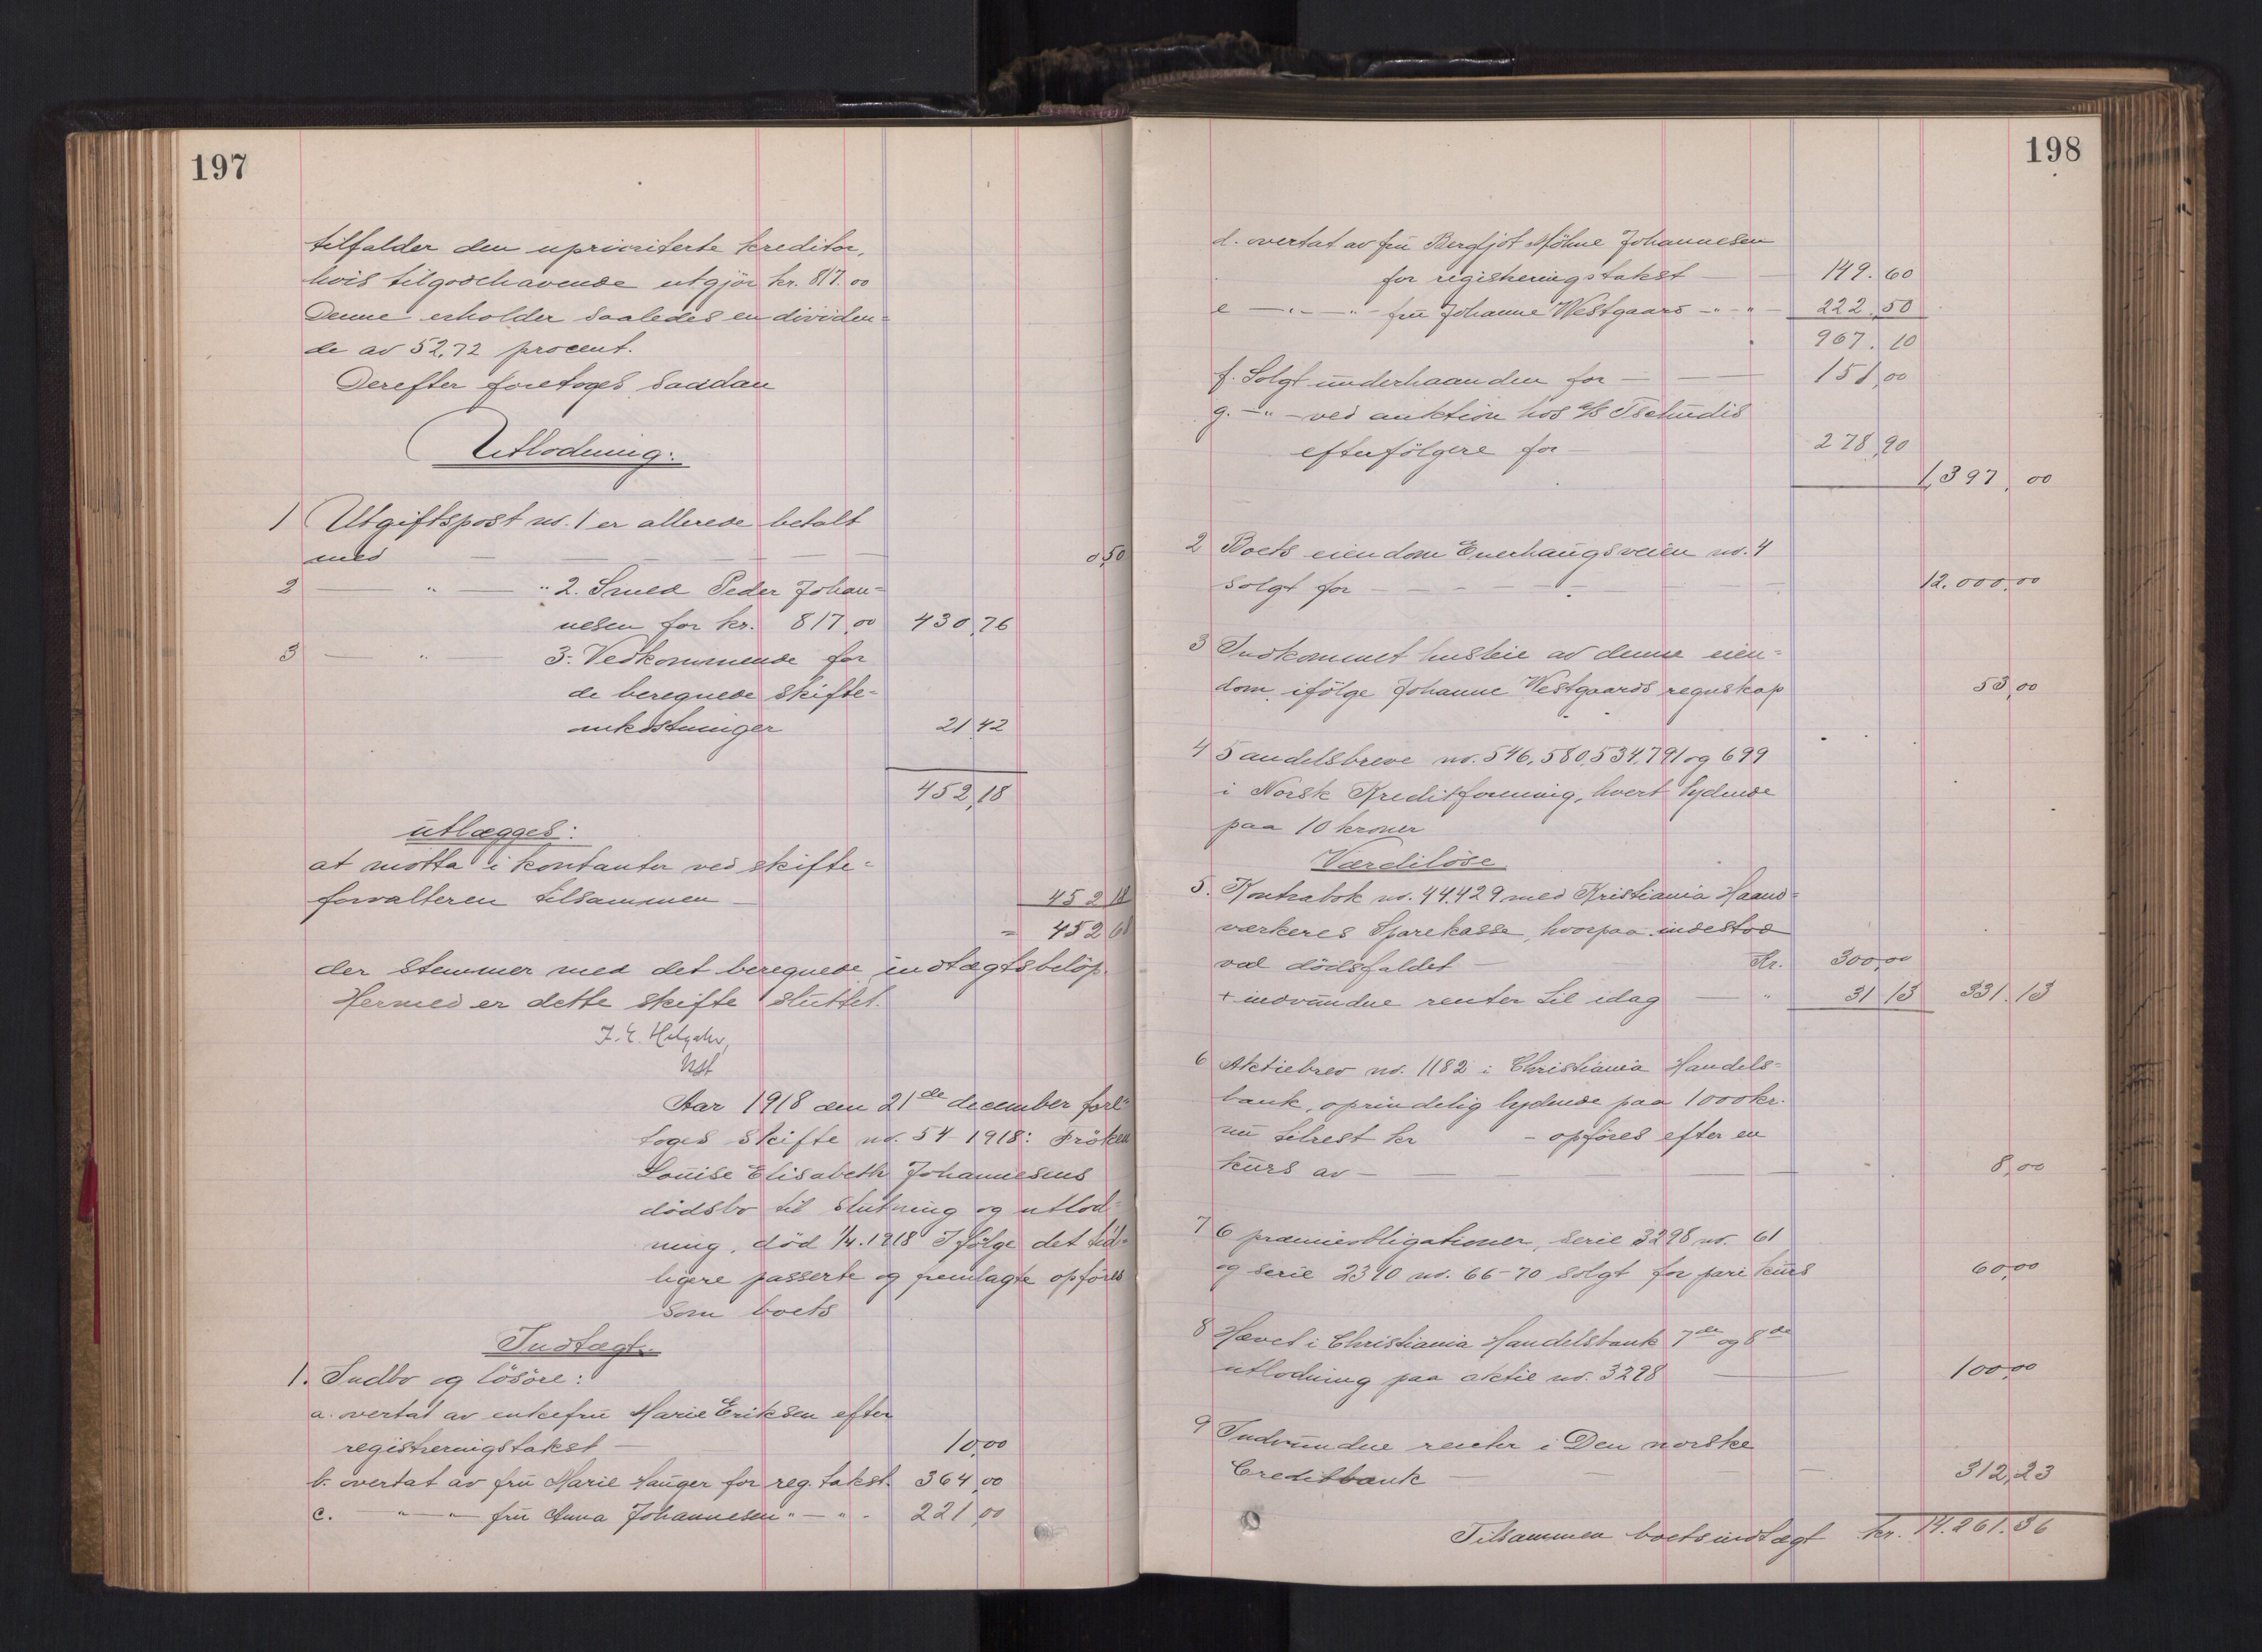 197
tilfalder den uprioriterte kreditor,
hvis tilgodehavende utgjör kr. 817.00
Denne erholder saaledes en dividen=
de av 52,72 procent.
Derefter foretoges saadan
Utlodning:
1 Utgiftspost no. 1 er allerede betalt
med — — — — — 0,50
2 — " — " 2. Smed Peder Johan=
nesen for kr. 817,00 430,76
3 — " — 3. Vedkommende for
de beregnede skifte=
omkostninger 21,42
452,18
utlægges:
at motta i kontanter ved skifte=
forvalteren tilsammen — 452 18
= 452 68
der stemmer med det beregnede indtægtsbelöp.
Hermed er dette skifte sluttet.
Aar 1918 den 21de december fore=
toges skifte no. 54-1918: Fröken
Louise Elisabeth Johannesens
dödsbo til slutning og utlod=
ning, död 1/4.1918 Ifölge det tid=
ligere passerte og fremlagte opföres
som boets
Indtægt.
1. Indbo og lösöre:
a. overtat av enkefru Marie Eriksen efter
registreringstakst — 10,00
b. overtat av fru Marie Hauger for reg. takst. 364,00
c. — " — " — fru Anna Johannesen " — " - 221,00
198
d. overtat av fru Bergljot Möhne Johannesen
for registreringstakst — 149.60
e — " — " — fru Johanne Westgaard — " — " — 222.50
967.10
f. Solgt underhaanden for — — 151,00
g. — " — ved auktion hos A/S Tschudis
efterfölgere for — 278,90
1,397,00
2 Boets eiendom Enerhaugsveien no. 4
solgt for — — — — 12.000,00
3 Indkommet husleie av denne eien=
dom ifölge Johanne Westgaards regnskap 53,00
4 5 andelsbreve no. 546, 580, 534, 791 og 699
i Norsk Kreditforening, hvert lydende
paa 10 kroner
Værdilöse
5. Kontrabok no. 44.429 med Kristiania Haand=
værkeres Sparekasse, hvorpaa indestod
ved dödsfaldet — Kr. 300,00
+ indvundne renter til idag — " 31 13 331.13
6 Aktiebrev no. 1182 i Christiania Handels=
bank, oprindelig lydende paa 1000 kr.
nu tilrest kr — opföres efter en
kurs av — — — 8,00
7 6 præmieobligationer, serie 3298 no. 61
og serie 2390 no. 66-70 solgt for pari kurs 60,00
8 Hævet i Christiania Handelsbank 7de og 8de
utlodning paa aktie no. 3298 — 100,00
9 Indvundne renter i Den norske
Creditbank — — — 312,23
Tilsammen boets indtægt kr. 14.261.36